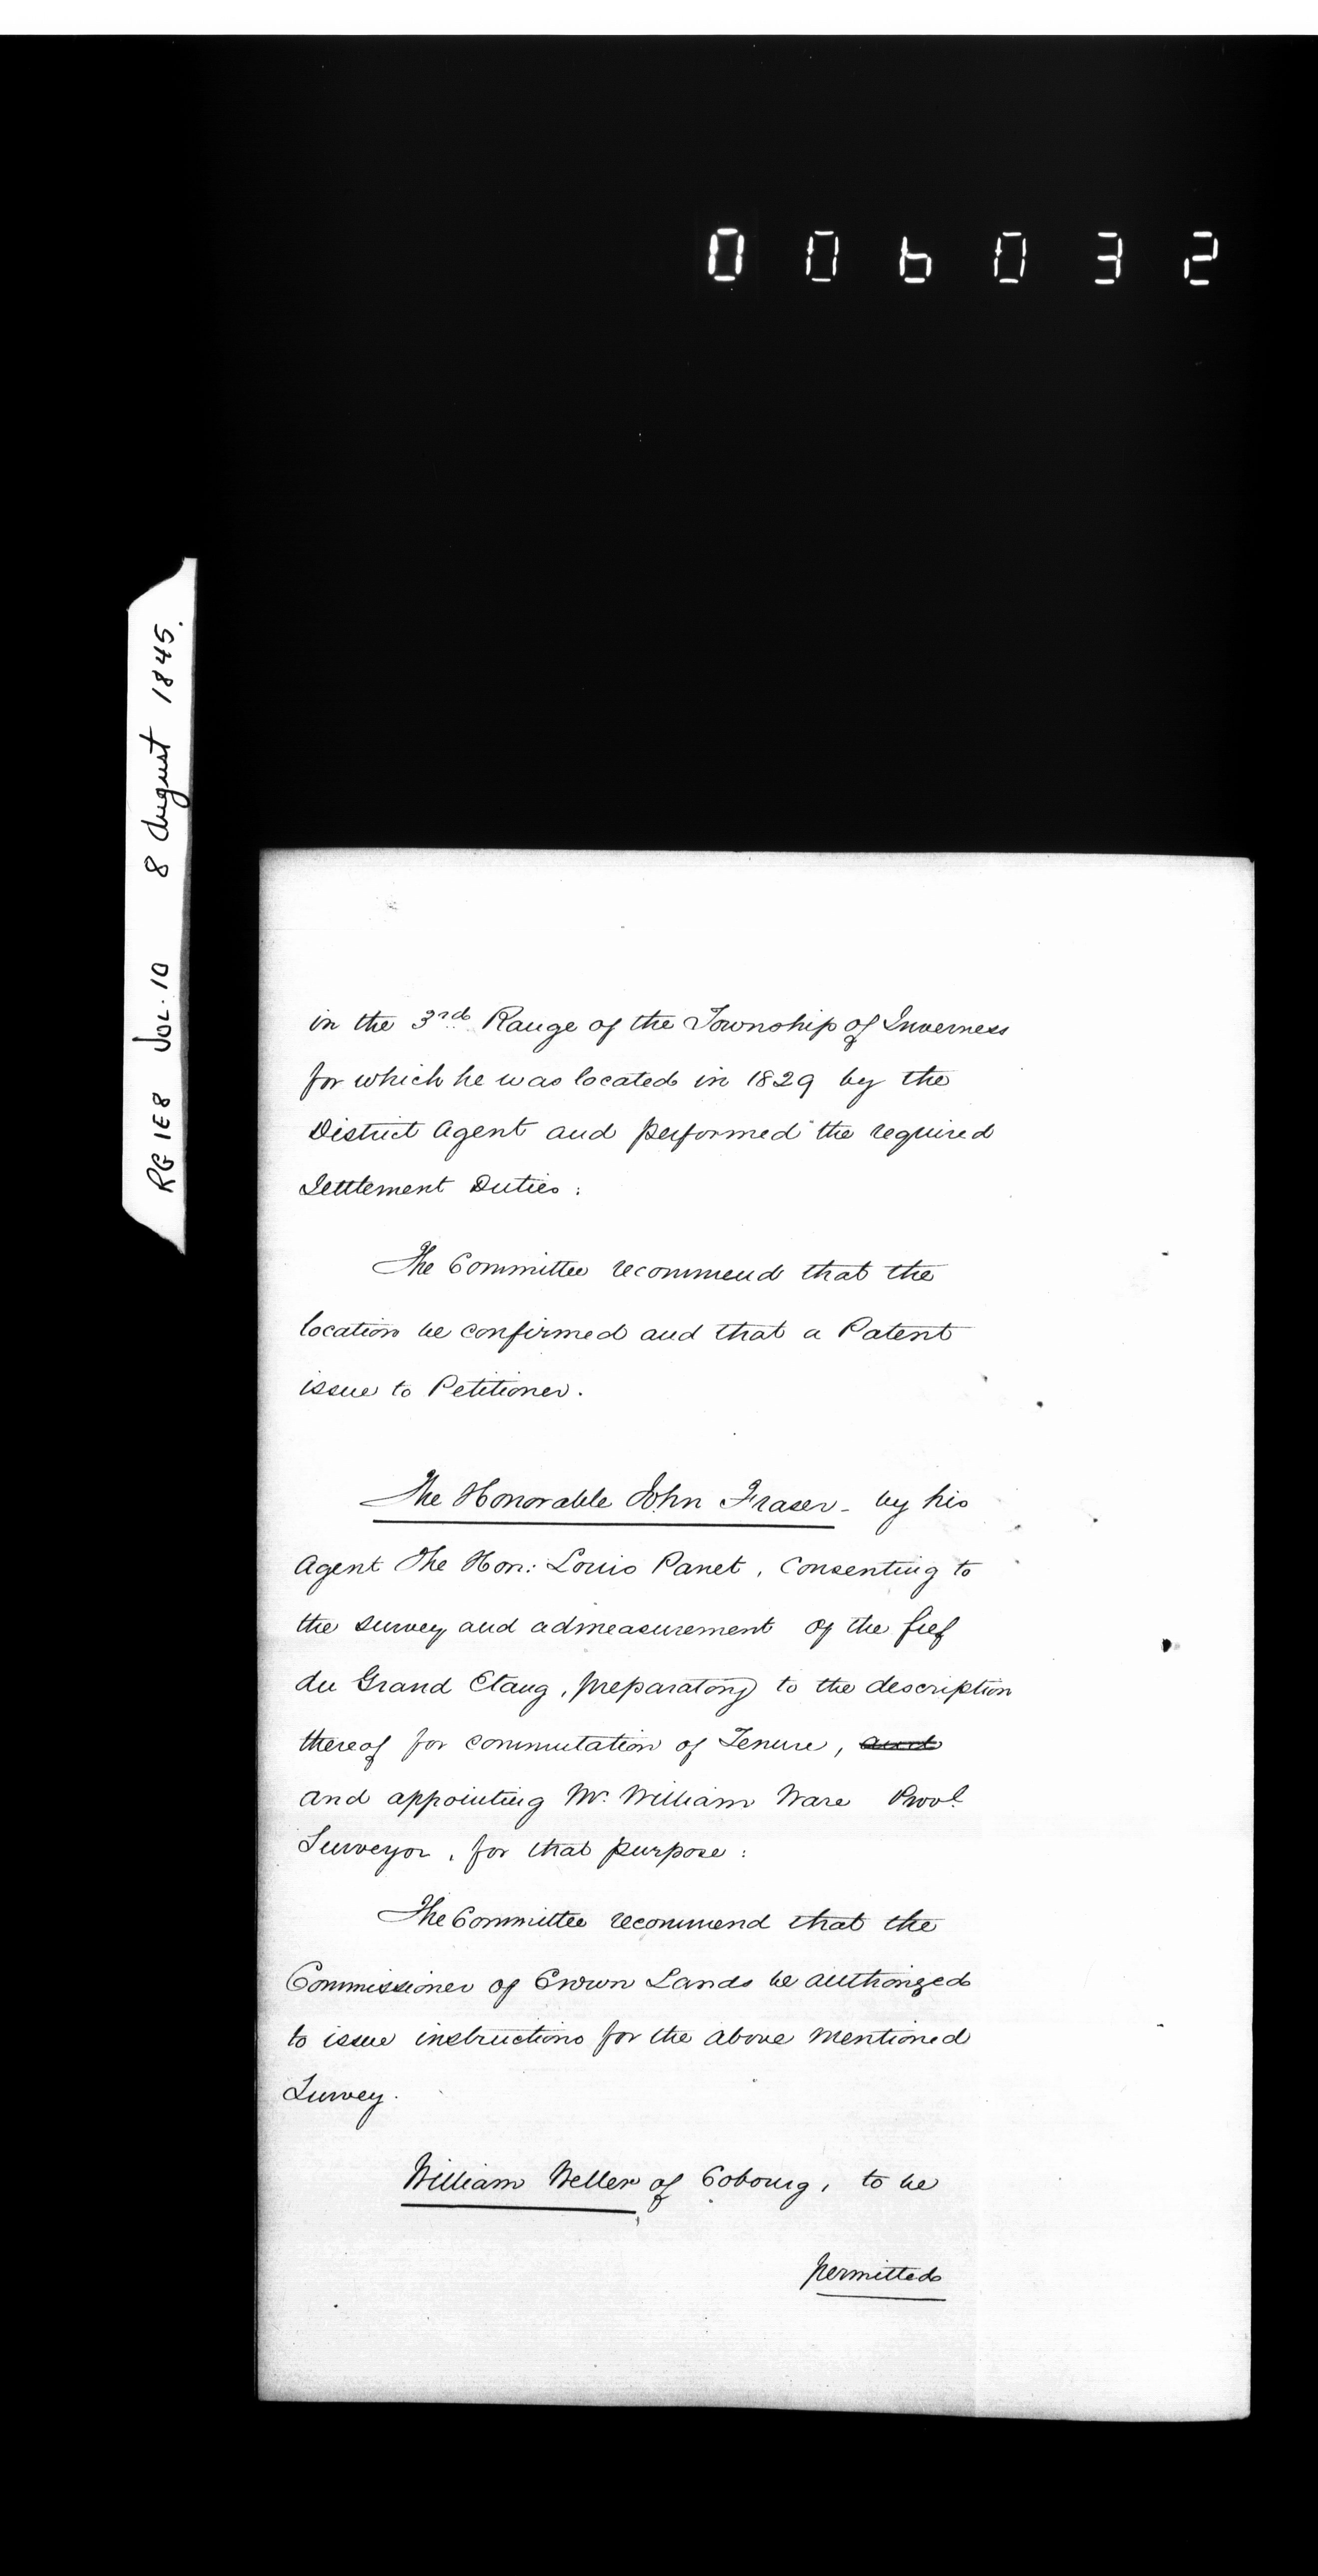 006032
RG 1E8 VOL. 10 8 August 1845.
in the 3rd Range of the Township of Inverness
for which he was located in 1829 by the
District Agent and performed the required
Settlement Duties :
The Committee recommend that the
location be confirmed and that a Patent
issue to Petitioner.
The Honorable John Fraser - by his
Agent The Hon: Louis Panet, Consenting to
the survey and admeasurement of the fief
du Grand Etang, preparatory to the description
thereof for commutation of Tenure, and
and appointing Mr. William Ware Provl.
Surveyor, for that purpose :
The Committee recommend that the
Commissioner of Crown Lands be authorized
to issue instructions for the above mentioned
Survey.
William Weller of Cobourg, to be
permitted